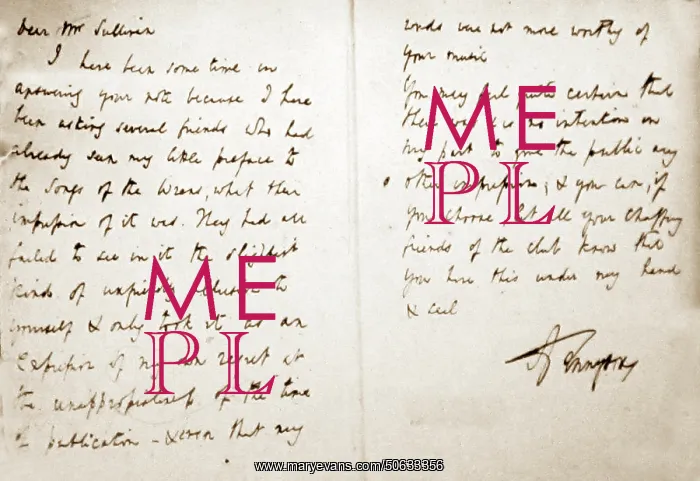 Dear Mr Sullivan
I have been some time in
answering your note because I have
been asking several friends who had
already seen my little preface to
the Songs of the Wrens, what their
impression of it was. They had all
failed to see in it the slightest
kind of unfriendly allusion to
yourself & only took it as an
expression of my own regret at
the unappropriateness of the time
of publication - & even that my
words were not more worthy of
your music
You may feel quite certain that
there was & is no intention on
my part to give the public any
other impression; & you can, if
you choose let all your chaffing
friends of the club know that
you have this under my hand
& seal
A Tennyson
ME
PL
ME
PL
www.maryevans.com/50633356